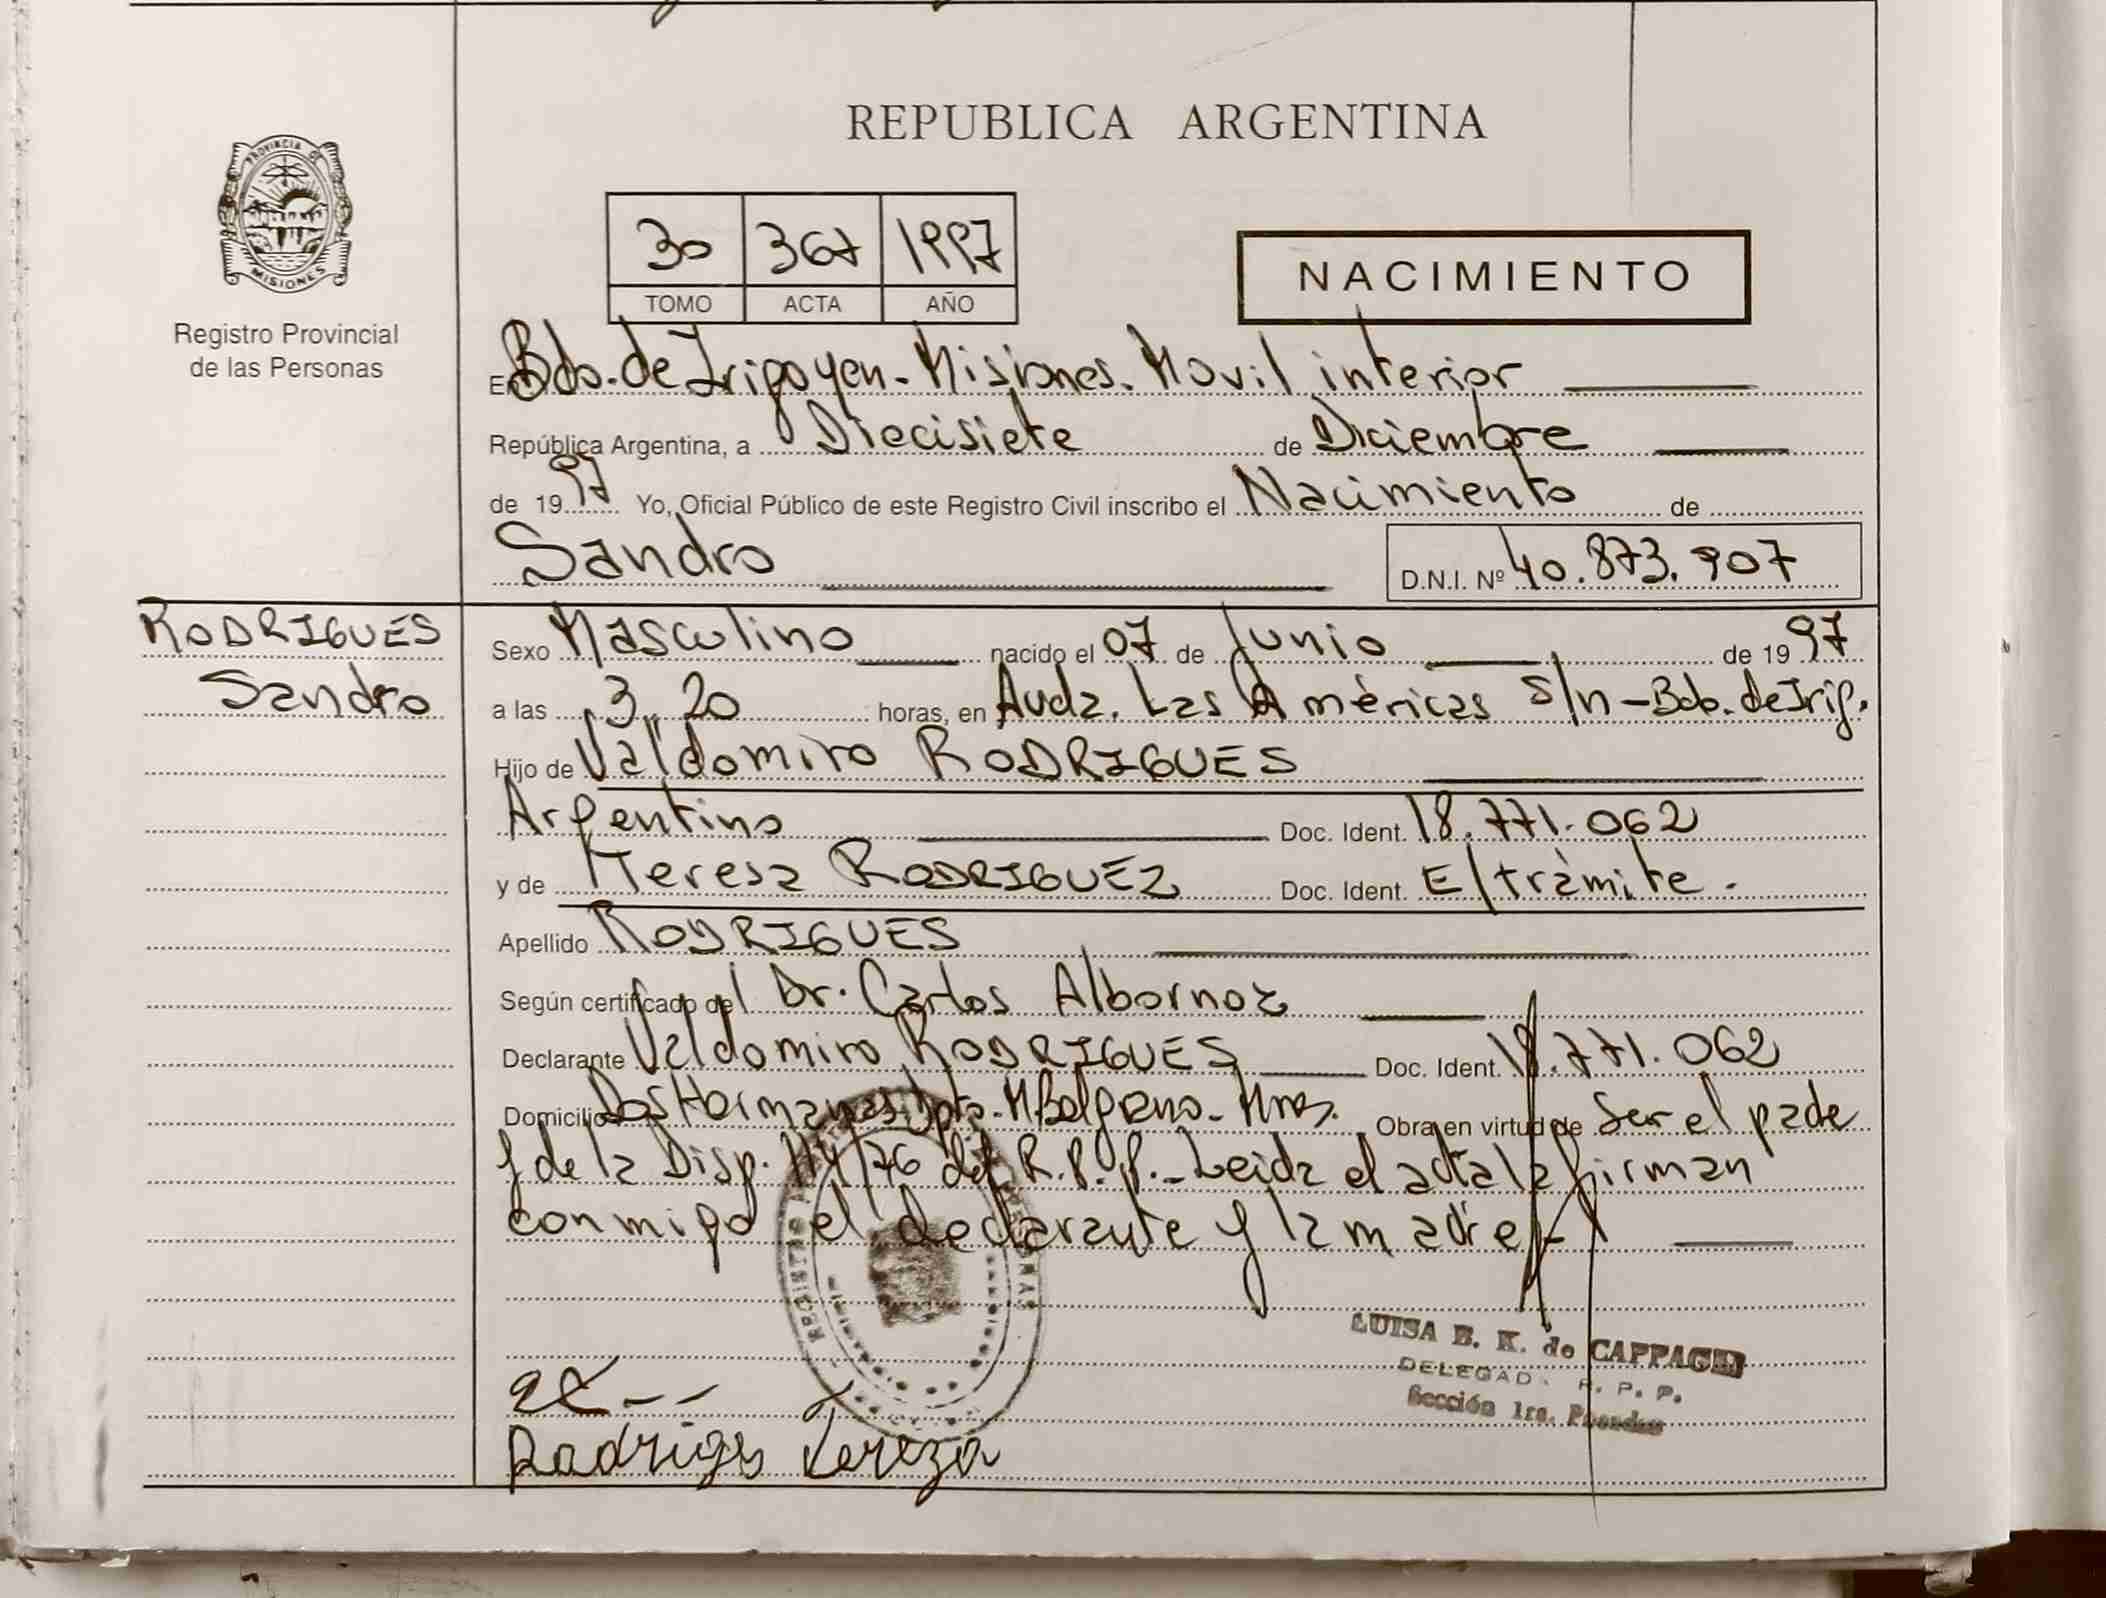 REPUBLICA ARGENTINA
PROVINCIA DE
MISIONES
Registro Provincial
de las Personas
30 367 1997
TOMO ACTA AÑO
NACIMIENTO
En Bdo. de Irigoyen - Misiones. Movil interior
República Argentina, a Diecisiete de Diciembre
de 1997 Yo, Oficial Público de este Registro Civil inscribo el Nacimiento de
Sandro D.N.I. Nº 40.873.907
RODRIGUES
Sandro
Sexo Masculino nacido el 07 de Junio de 1997
a las 3,20 horas, en Avda. Las Américas S/n - Bdo. de Irig.
Hijo de Valdomiro RODRIGUES
Argentino Doc. Ident. 18.771.062
y de Teresa RODRIGUEZ Doc. Ident. E/trámite.
Apellido RODRIGUES
Según certificado del Dr. Carlos Albornoz
Declarante Valdomiro RODRIGUES Doc. Ident. 18.771.062
Domicilio Dos Hermanas Dpto. M Belgrano - Mnes. Obra en virtud de Ser el padre
y de la Disp. 114/76 del R.P.P. - Leida el acta la firman
conmigo el declarante y la madre -
LUISA B. K. de CAPPAGLI
DELEGADA R. P. P.
Sección 1ra. Posadas
Rodrigs Tereza